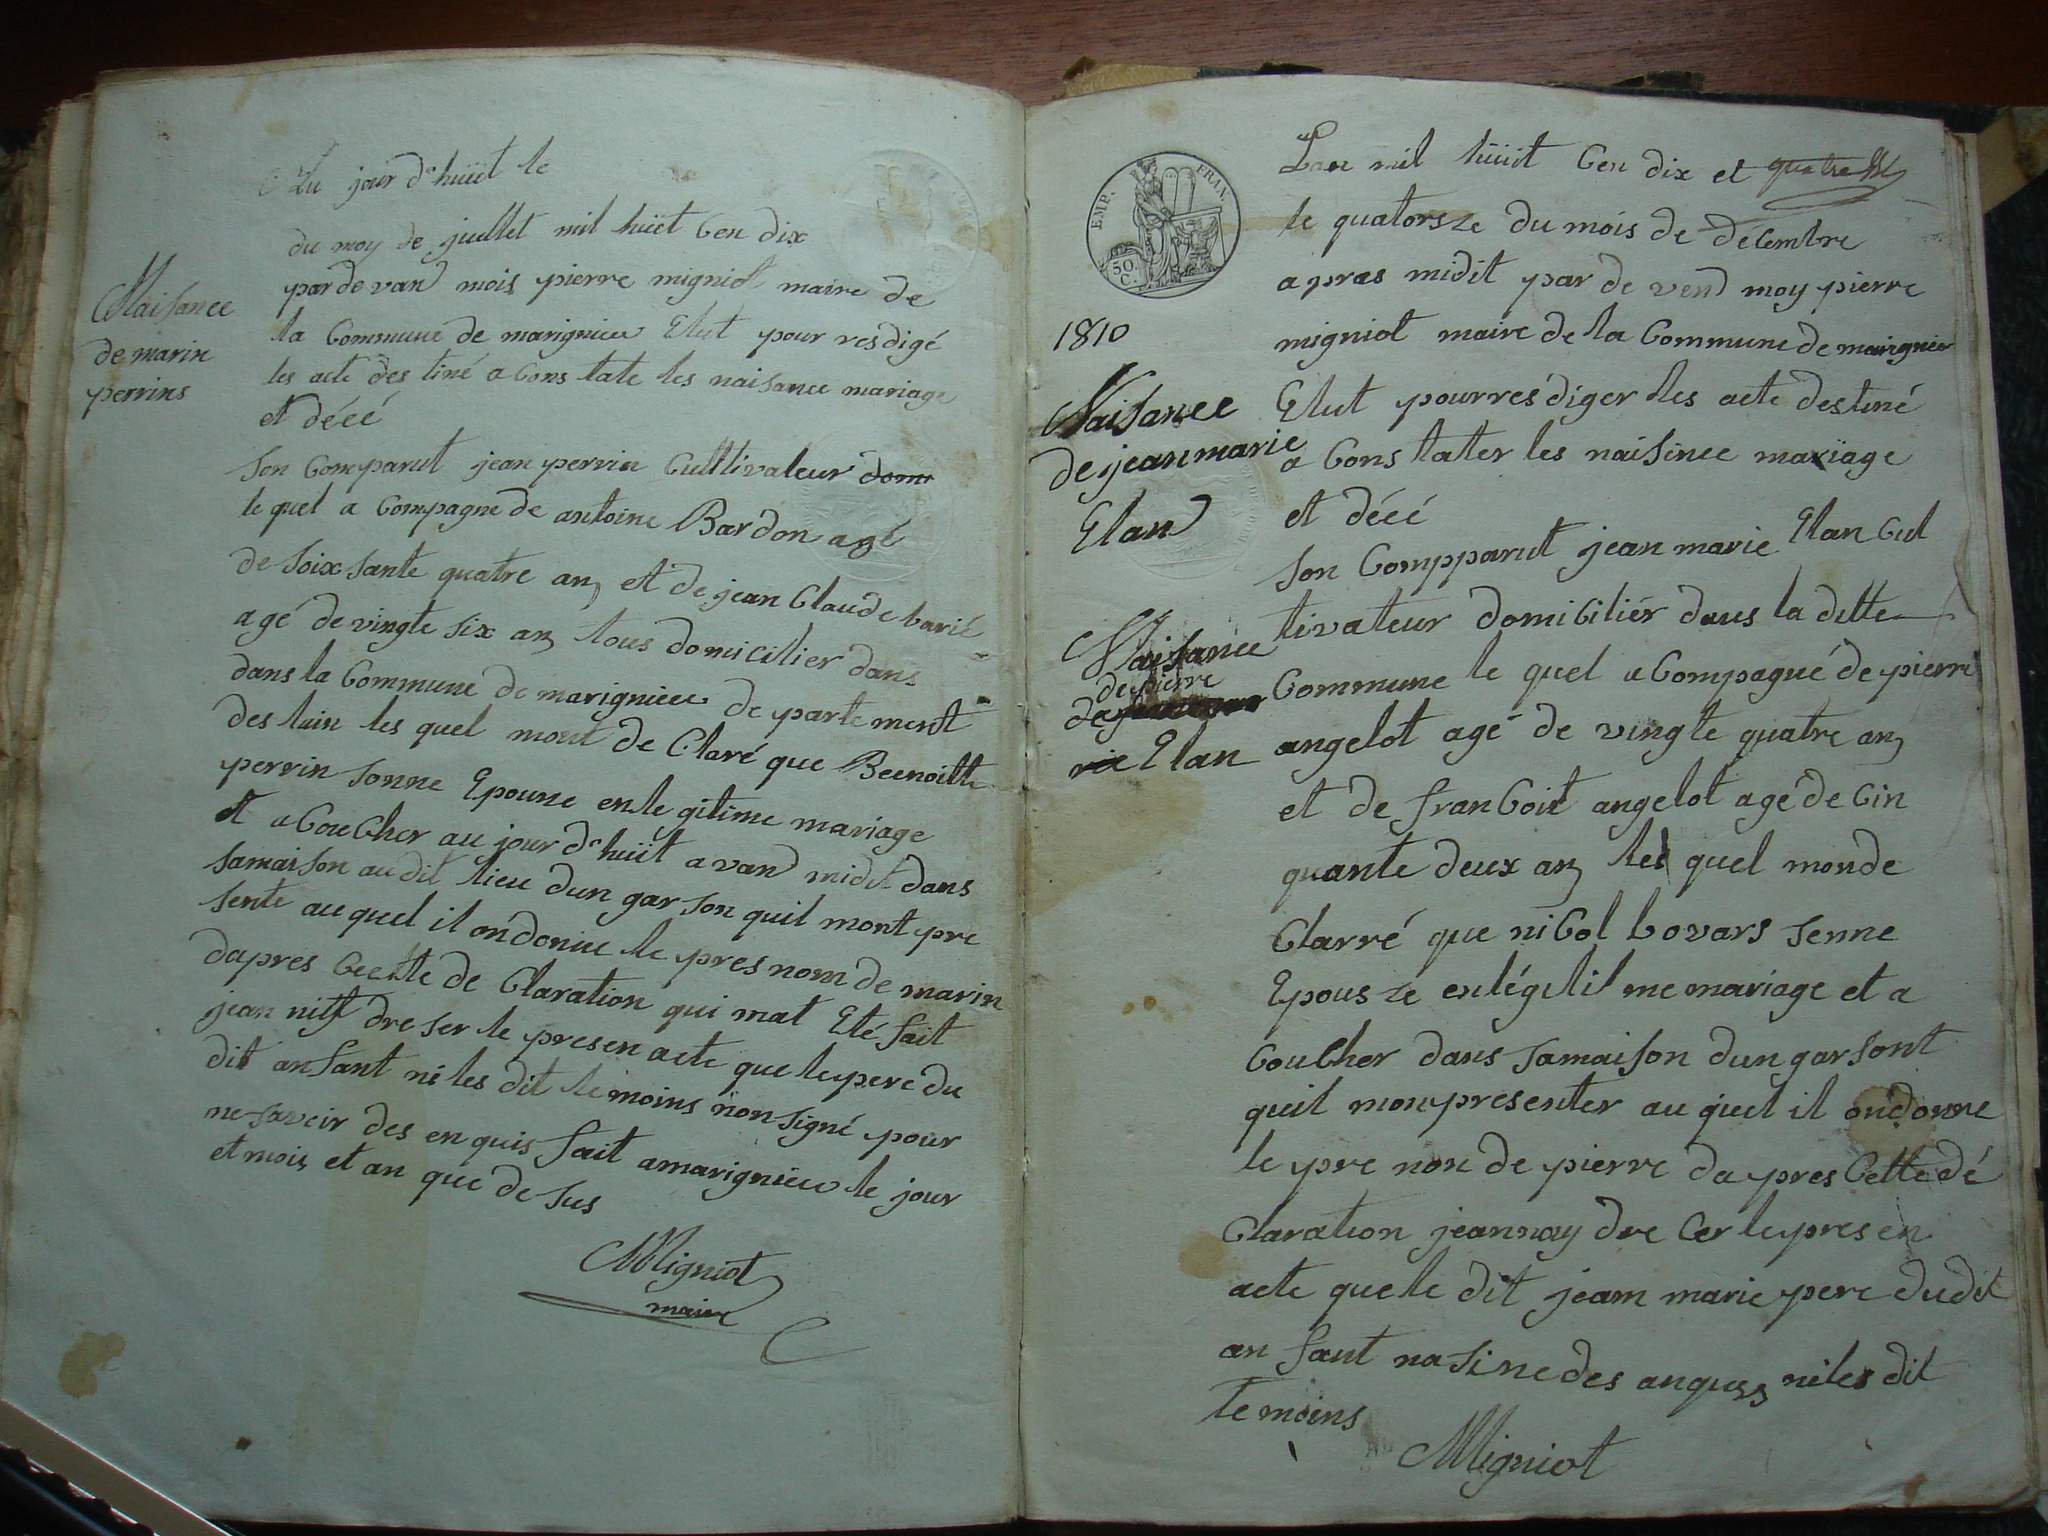 Lu jour d'huit le
du moy de juillet mil huit Cen dix
par de van mois pierre migniot maire de
la Commune de marignieu Elut pour resdigé
les acte des tiné a Cons tate les naisance mariage
et décé
Son Comparut jean perrin Cultivateur dom
le quel a Compagne de antoine Bardon agé
de Soix sante quatre an et de jean Claude barié
agé de vingte six an tous domicilier dans
dans la Commune de marignieu de parte ment
des lain les quel mont de Claré que Beenoitte
perrin sonne Epouse en le gitime mariage
et a Coucher au jour d'huit a van midit dans
sa maison au dit lieu dun garson quil mont pre
sente au quel il on donne le pres nom de marin
dapres Ceette de Claration qui mat Eté fait
jean nits dre ser le presen acte que le pere du
dit anfant ni les dit temoins non signé pour
ne savoir des en quis fait a marignieu le jour
et mois et an que de sus
Migniot
maire
Naisance
de marin
perrins
EMP. FRAN.
50.
C.
Lan mil huit Cen dix et quatre
le quatorsze du mois de décembre
apras midit par de vend moy pierre
migniot maire de la Commune de marignier
Elut pour resdiger les acte destiné
a Cons tater les naisince mariage
et décé
son Compparut jean marie Elan Cul
tivateur domicilier dans la ditte
Commune le quel a Compagné de pierre
angelot agé de vingte quatre an
et de franCoit angelot agé de Cin
quante deux an les quel monde
Clarré que niCol bovars senne
Epousze en légitil me mariage et a
CouCher dans sa maison dun garsont
quil mon presenter au quel il on donne
le pre non de pierre da pres Cette dé
Claration jeannay dre Cer le pres en
acte que le dit jeam marie pere du dit
an fant na sine des anquis ni les dit
te moins
Migniot
1810
Naisance
de jean marie
Elan
Naisance
de pierre
Elan